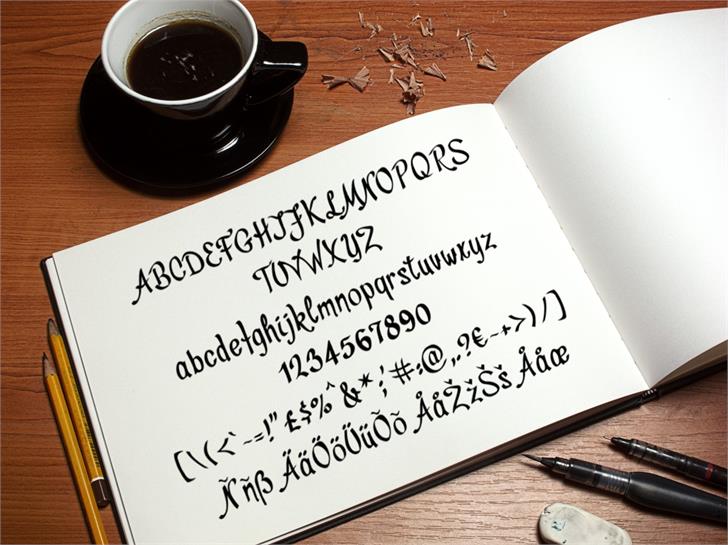 ABCDEFGHIJKLMNOPQRS
TUVWXYZ
abcdefghijklmnopqrstuvwxyz
1234567890
[\(<`~-=!"£$%^&*¦;#:@,.?€~+>)/]
Ññß ÄäÖöÜüÕõ ÅåŽžŠš Ååœ